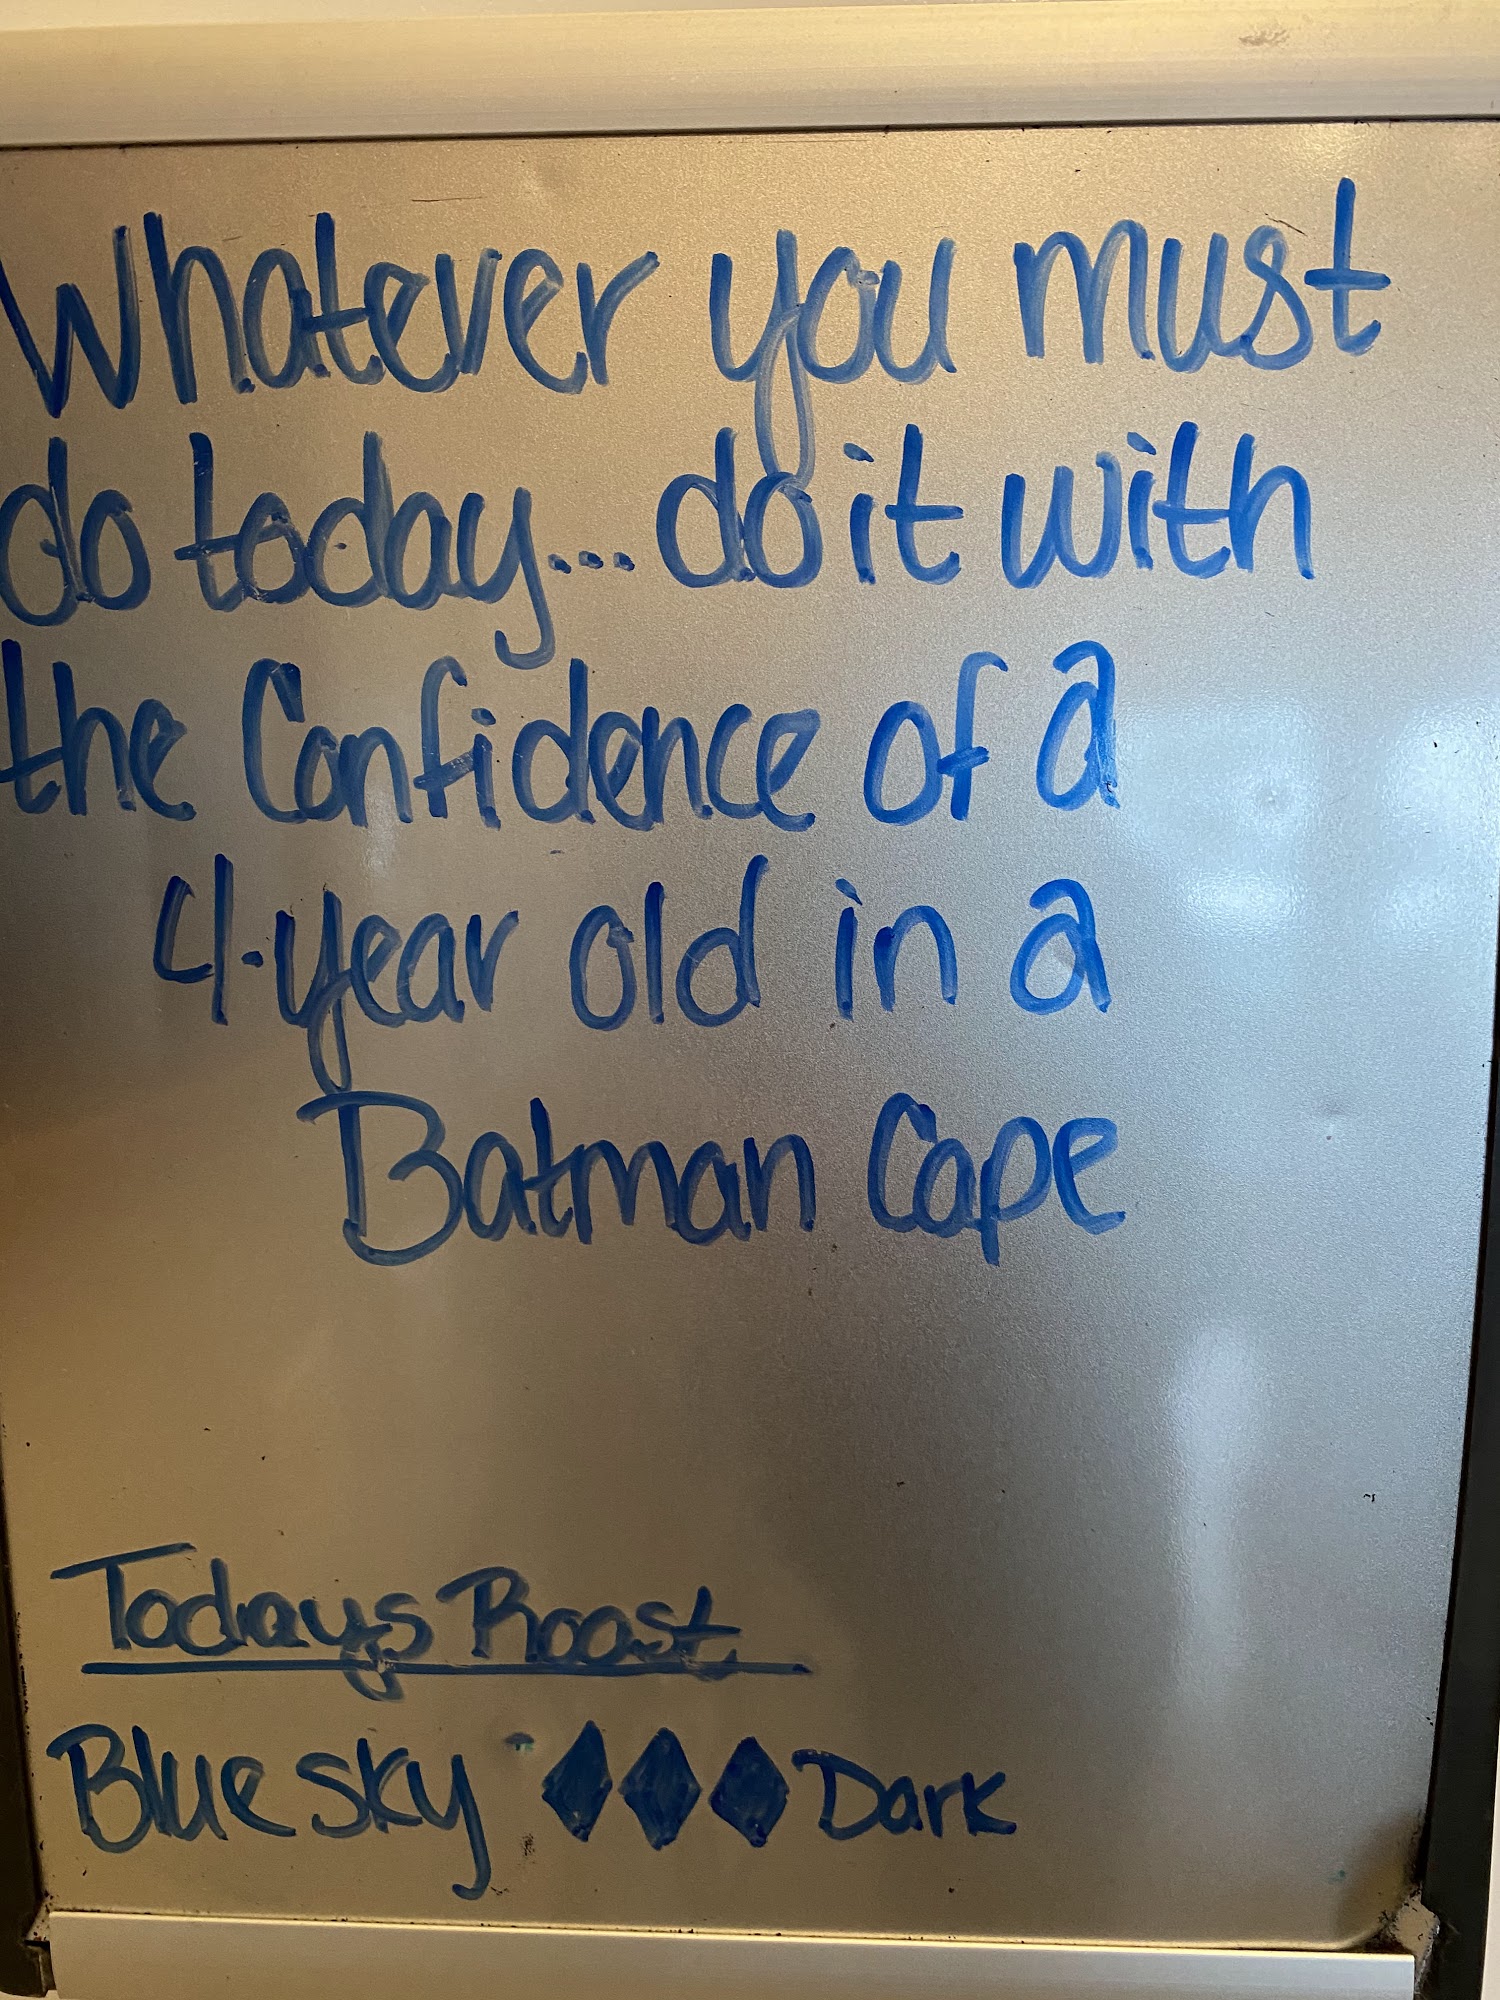 Whatever you must
do today... do it with
the Confidence of a
4-year old in a
Batman Cape
Todays Roast
Blue sky ♦♦♦ Dark